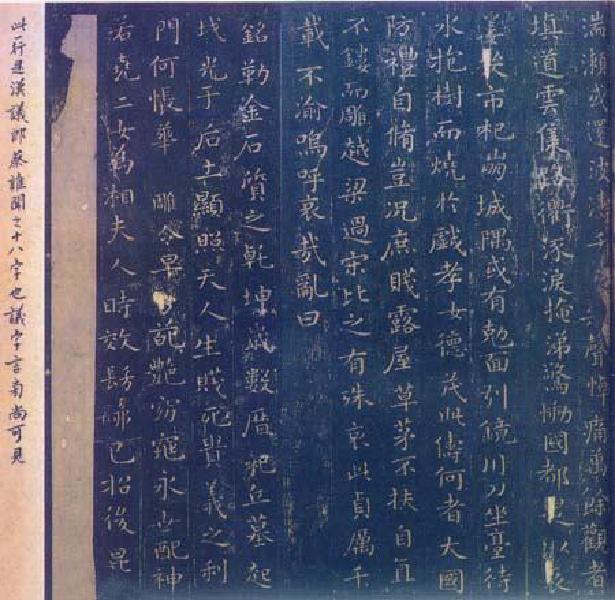 湍瀨或還波濤千聲悼痛萬餘觀者
填道雲集路衢淚掩涕驚慟國都是以哀
姜市杞崩城隅或有剋面引鏡刀坐臺待
水抱樹而燒於戲孝女德茂此儔何者大國
防禮自脩豈況庶賤露屋草茅不扶自直
不鏤而雕越梁過宋比之有殊哀此貞厲千
載不渝嗚呼哀哉亂曰
銘勒金石質之乾坤歲數曆祀丘墓起
墳光于后土顯照天人生賤死貴義之利
門何悵華雕零早葩艷窈窕永世配神
若堯二女為湘夫人時效髣髴以招後昆
此一行是漢議郎蔡雍聞之十八字也議字言旁尚可見